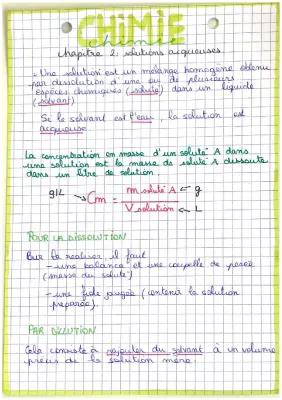 CHIMIE
chimie
chapitre 2: solutions acqueuses
- Une solution est un mélange homogène obtenu
par dissolution d'une ou de plusieurs
espèces chimiques (soluté) dans un liquide
(solvant)
Si le solvant est l'eau, la solution est
acqueuse
La concentration en masse d'un soluté A dans
une solution est la masse de soluté A dissoute
dans un litre de solution.
g/L Cm = m soluté A ← g
V solution ← L
POUR LA DISSOLUTION
Pour la réaliser, il faut
- une balance et une coupelle de pesée
(masse du soluté)
- une fiole jaugée (contenir la solution
préparée).
PAR DILUTION
Cela consiste à rajouter du solvant à un volume
précis de la solution mère.